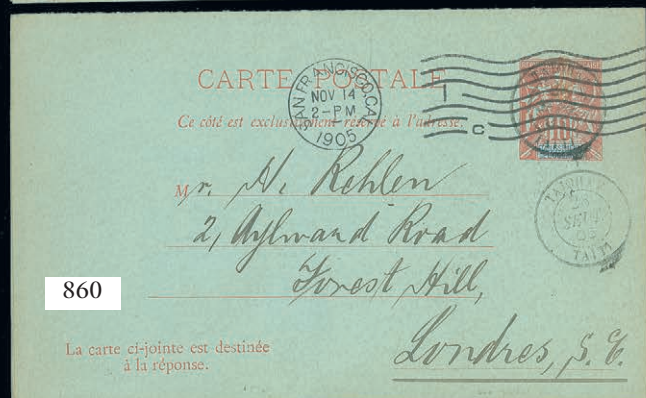 CARTE POSTALE
SAN FRANCISCO, CAL.
NOV 14
2-PM
1905
C
Ce côté est exclusivement réservé à l'adresse.
Mr. A. Rehlen
2, Aylward Road
Forest Hill,
Londres, S. E.
TAIOHAE
SEPT
05
TAITI
860
La carte ci-jointe est destinée
à la réponse.